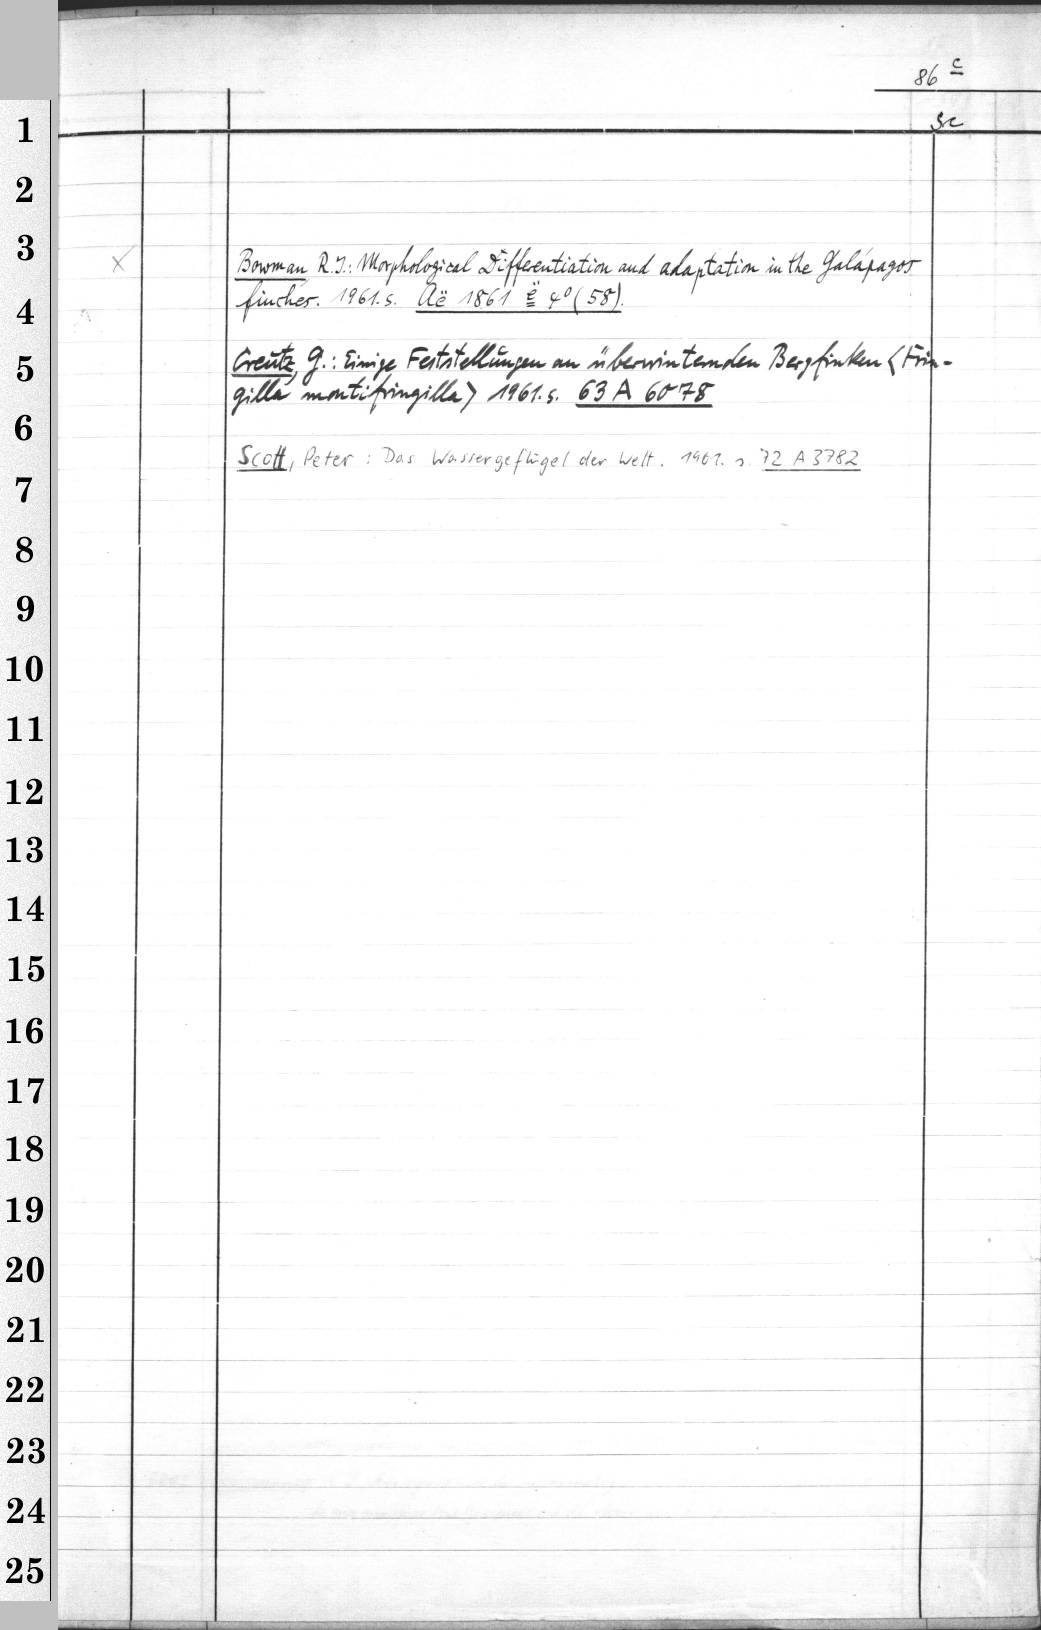 86 c
Sc
1
2
3
Bowman R.I.: Morphological Differentiation and adaptation in the Galápagos
finches. 1961. s. Aë 1861 ë 4° (58).
4
Creutz, G.: Einige Feststellungen an überwinternden Bergfinken <Frin-
gilla montifringilla> 1961. s. 63 A 6078
5
6
Scott, Peter: Das Wassergeflügel der Welt. 1961. s. 72 A 3782
7
8
9
10
11
12
13
14
15
16
17
18
19
20
21
22
23
24
25